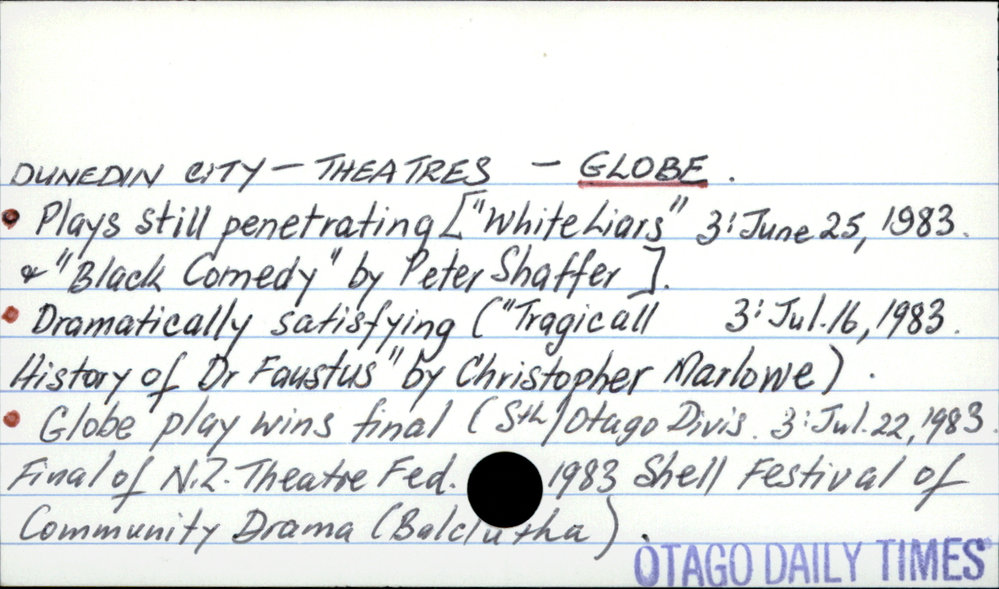 DUNEDIN CITY - THEATRES - GLOBE.
• Plays still penetrating ["White Liars" 3: June 25, 1983.
& "Black Comedy" by Peter Shaffer].
• Dramatically satisfying ("Tragicall 3: Jul. 16, 1983.
History of Dr Faustus" by Christopher Marlowe).
• Globe play wins final (Sth/Otago Divis. 3: Jul. 22, 1983.
Final of N.Z. Theatre Fed. 1983 Shell Festival of
Community Drama (Balclutha).
OTAGO DAILY TIMES